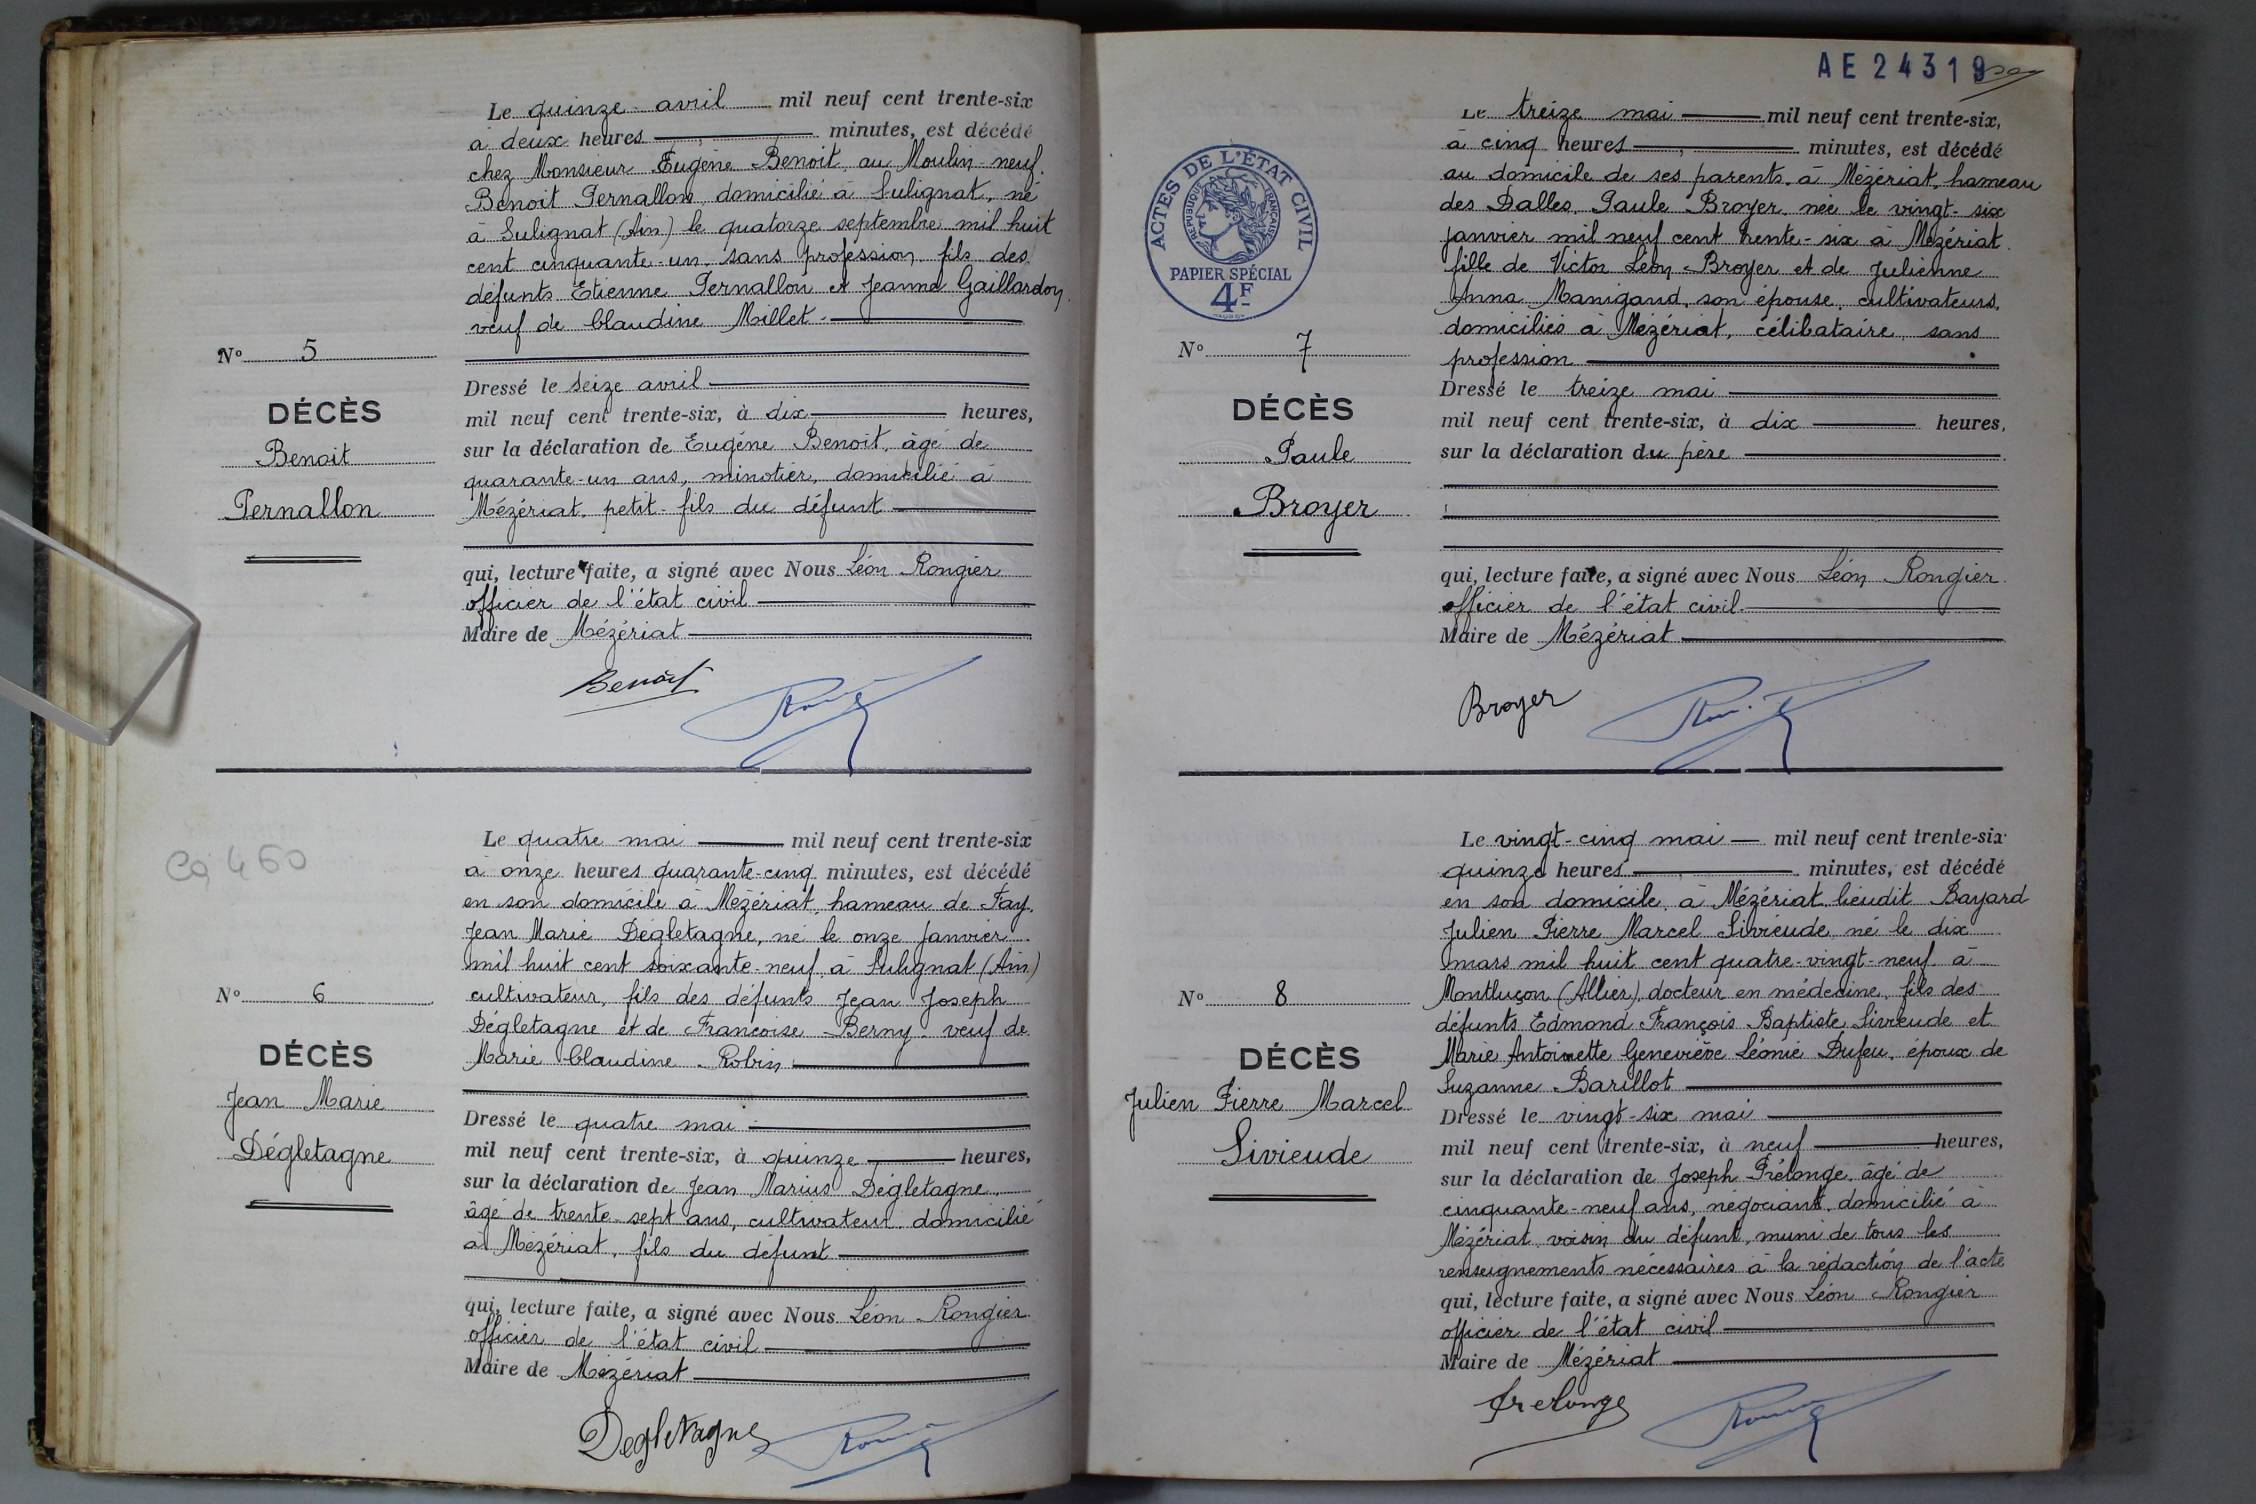 Le quinze avril mil neuf cent trente-six
à deux heures minutes, est décédé
chez Monsieur Eugène Benoit, au Moulin-neuf.
Benoit Pernallon, domicilié à Sulignat, né
à Sulignat (Ain) le quatorze septembre mil huit
cent cinquante-un, sans profession, fils des
défunts Etienne Pernallon et Jeanne Gaillardon,
veuf de Claudine Millet.
N° 5
DÉCÈS
Benoit
Pernallon
Dressé le seize avril
mil neuf cent trente-six, à dix heures,
sur la déclaration de Eugène Benoit, âgé de
quarante-un ans, minotier, domicilié à
Mézériat, petit-fils du défunt
qui, lecture faite, a signé avec Nous Léon Rongier
officier de l'état civil
Maire de Mézériat
Benoit
Le quatre mai mil neuf cent trente-six
à onze heures quarante-cinq minutes, est décédé
en son domicile à Mézériat, hameau de Fay,
Jean Marie Dégletagne, né le onze janvier
mil huit cent soixante-neuf, à Sulignat (Ain)
cultivateur, fils des défunts Jean Joseph
Dégletagne et de Francoise Berny veuf de
Marie Claudine Robin
Cq 460
N° 6
DÉCÈS
Jean Marie
Dégletagne
Dressé le quatre mai
mil neuf cent trente-six, à quinze heures,
sur la déclaration de Jean Marius Dégletagne,
âgé de trente-sept ans, cultivateur domicilié
à Mézériat, fils du défunt
qui, lecture faite, a signé avec Nous Léon Rongier
officier de l'état civil
Maire de Mézériat
Degletagne
AE 24319
ACTES DE L'ÉTAT CIVIL
RÉPUBLIQUE FRANÇAISE
PAPIER SPÉCIAL
4F
Le treize mai mil neuf cent trente-six,
à cinq heures minutes, est décédé
au domicile de ses parents, à Mézériat, hameau
des Dalles, Paule Broyer, née le vingt-six
janvier mil neuf cent trente-six à Mézériat
fille de Victor Léon Broyer et de Julienne
Anna Manigand, son épouse, cultivateurs,
domiciliés à Mézériat, célibataire, sans
profession
N° 7
DÉCÈS
Paule
Broyer
Dressé le treize mai
mil neuf cent trente-six, à dix heures,
sur la déclaration du père
qui, lecture faite, a signé avec Nous Léon Rongier
officier de l'état civil
Maire de Mézériat
Broyer
Le vingt-cinq mai mil neuf cent trente-six
quinze heures minutes, est décédé
en son domicile, à Mézériat, lieudit Bayard
Julien Pierre Marcel Sivieude, né le dix
mars mil huit cent quatre-vingt-neuf à
Montluçon (Allier), docteur en médecine, fils des
défunts Edmond François Baptiste Sivieude et
Marie Antoinette Geneviève Léonie Dufeu, époux de
Suzanne Barillot
N° 8
DÉCÈS
Julien Pierre Marcel
Sivieude
Dressé le vingt-six mai
mil neuf cent trente-six, à neuf heures,
sur la déclaration de Joseph Prélonge, âgé de
cinquante-neuf ans, négociant, domicilié à
Mézériat voisin du défunt, muni de tous les
renseignements nécessaires à la rédaction de l'acte
qui, lecture faite, a signé avec Nous Léon Rongier
officier de l'état civil
Maire de Mézériat
Prelonge